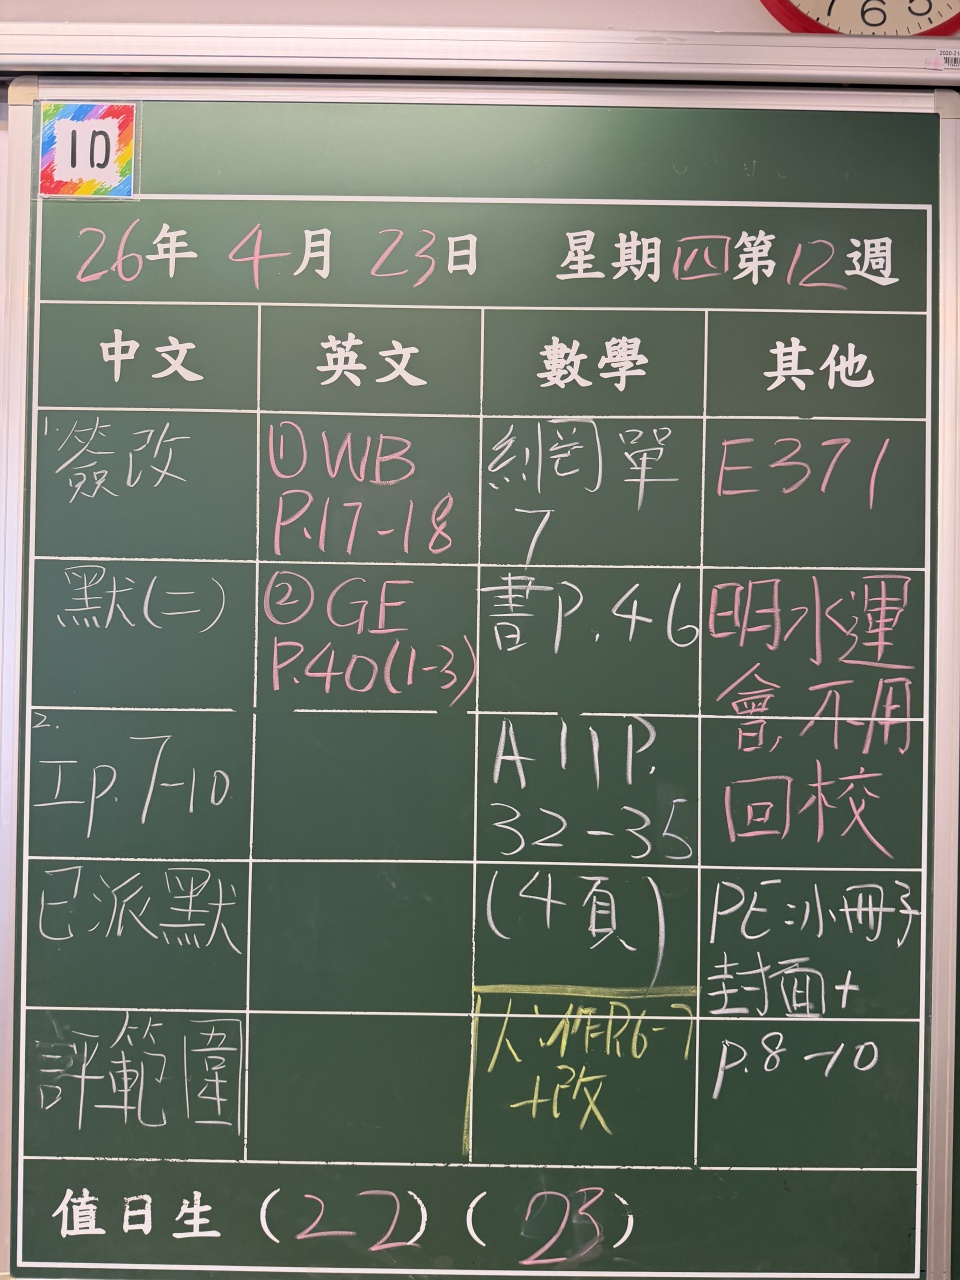 7 6 5
1D
26年 4月 23日 星期四第12週
中文 英文 數學 其他
1. 簽改
默(二)
2.
工p.7-10
已派默
評範圍
①WB
P.17-18
②GE
P.40(1-3)
網單
7
書P.46
A11P.
32-35
(4頁)
人 作P.6-7
+改
E371
明水運
會,不用
回校
PE:小冊子
封面+
p.8-10
值日生 (22) (23)